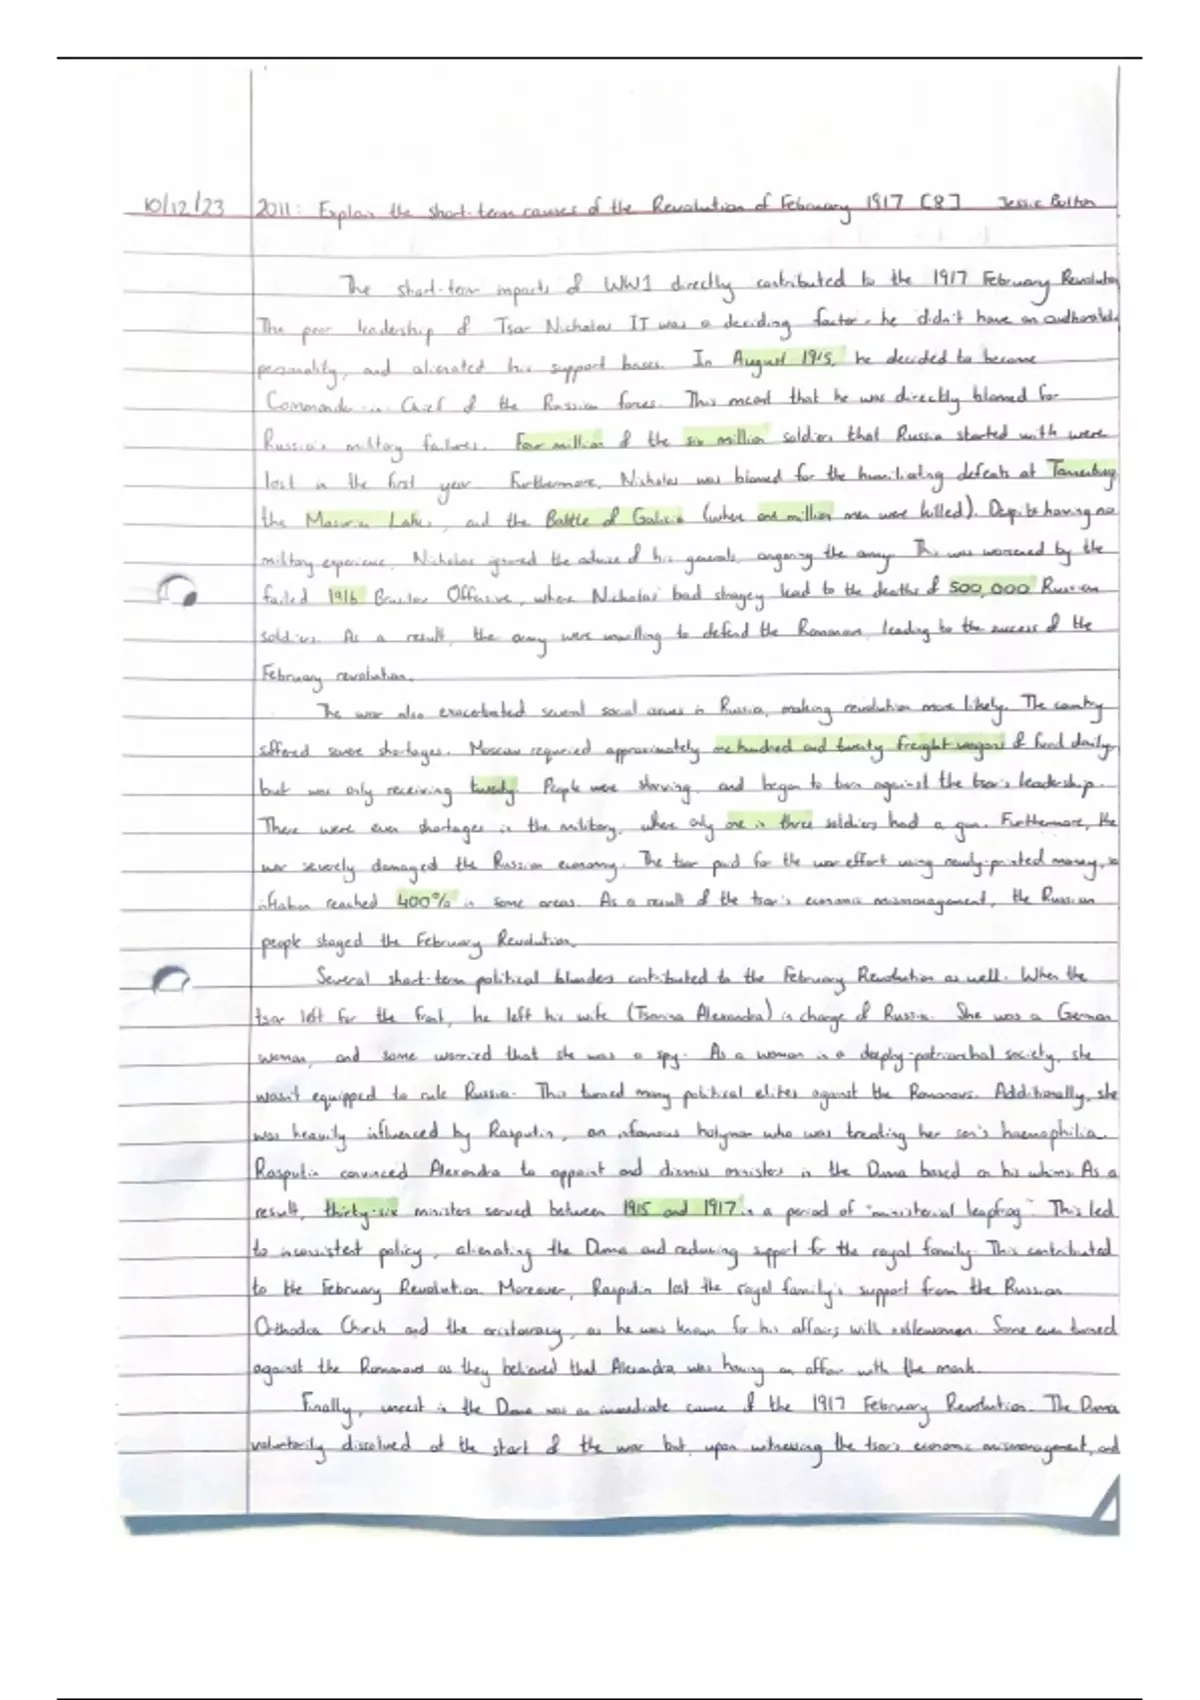 10/12/23 2011: Explain the short-term causes of the Revolution of February 1917 [8] Jessie Bolton
The short-term impacts of WW1 directly contributed to the 1917 February Revolution
The poor leadership of Tsar Nicholas II was a deciding factor - he didn't have an
personality, and alienated his support bases. In August 1915, he decided to become
Commander-in-Chief of the Russian forces. This meant that he was directly blamed for
Russia's military failures. Four million of the six million soldiers that Russia started with were
lost in the first year. Furthermore, Nicholas was blamed for the humiliating defeats at
the Masurian Lakes, and the Battle of Galicia (where one million men were killed). Despite having no
military experience, Nicholas ignored the advice of his generals, angering the army. This was worsened by the
failed 1916 Brusilov Offensive, where Nicholas' bad stragey lead to the deaths of 500,000 Russian
soldiers. As a result, the army were unwilling to defend the Romanovs, leading to the success of the
February revolution.
The war also exacerbated several social issues in Russia, making revolution more likely. The country
suffered severe shortages. Moscow required approximately one hundred and twenty freight wagons of food daily,
but was only receiving twenty. People were starving, and began to turn against the tsar's leadership.
There were even shortages in the military, where only one in three soldiers had a gun. Furthermore, the
war severely damaged the Russian economy. The tsar paid for the war effort using newly-printed money, so
inflation reached 400% in some areas. As a result of the tsar's economic mismanagement, the Russian
people staged the February Revolution.
Several short-term political blunders contributed to the February Revolution as well. When the
tsar left for the front, he left his wife (Tsarina Alexandra) in charge of Russia. She was a German
woman, and some worried that she was a spy. As a woman in a deeply-patriarchal society, she
wasn't equipped to rule Russia. This turned many political elites against the Romanovs. Additionally, she
was heavily influenced by Rasputin, an infamous holyman who was treating her son's haemophilia.
Rasputin convinced Alexandra to appoint and dismiss ministers in the Duma based on his whims. As a
result, thirty-six ministers served between 1915 and 1917 in a period of "ministerial leapfrog". This led
to inconsistent policy, alienating the Duma and reducing support for the royal family. This contributed
to the February Revolution. Moreover, Rasputin lost the royal family's support from the Russian
Orthodox Church and the aristocracy, as he was known for his affairs with noblewomen. Some even turned
against the Romanovs as they believed that Alexandra was having an affair with the monk.
Finally, unrest in the Duma was an immediate cause of the 1917 February Revolution. The Duma
voluntarily dissolved at the start of the war but, upon witnessing the tsar's economic mismanagement, and